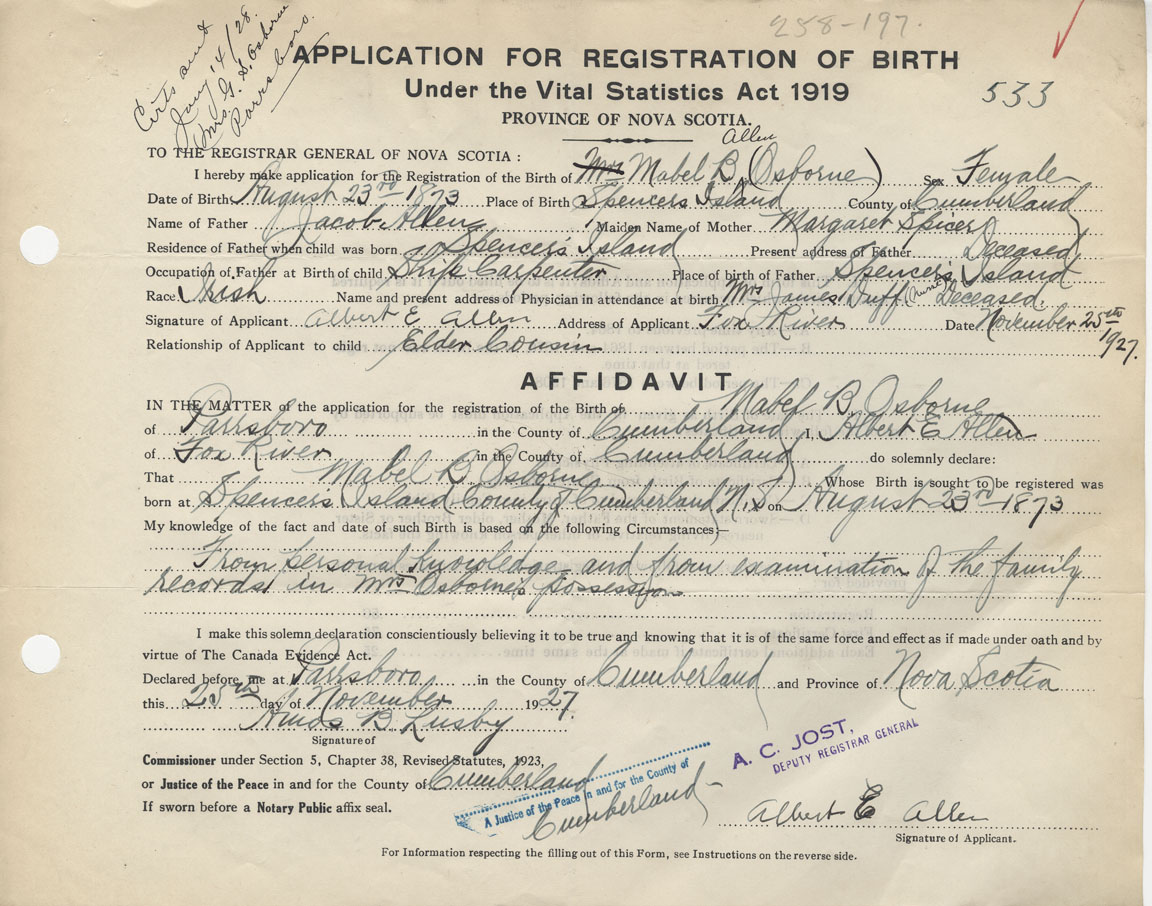 258-197.
Certs sent
Jany 14/28.
Mrs. G. S. Osborne
Parrsboro.
APPLICATION FOR REGISTRATION OF BIRTH
Under the Vital Statistics Act 1919
533
PROVINCE OF NOVA SCOTIA.
TO THE REGISTRAR GENERAL OF NOVA SCOTIA :
Allen
I hereby make application for the Registration of the Birth of Mrs Mabel B. (Osborne) Sex Female
Date of Birth August 23rd 1873 Place of Birth Spencers Island County of Cumberland
Name of Father Jacob Allen Maiden Name of Mother Margaret Spicer
Residence of Father when child was born Spencer's Island Present address of Father Deceased
Occupation of Father at Birth of child Ship Carpenter Place of birth of Father Spencer's Island
Race Irish Name and present address of Physician in attendance at birth Mrs James Duff (nurse) Deceased.
Signature of Applicant Albert E Allen Address of Applicant Fox River Date November 25th 1927.
Relationship of Applicant to child Elder Cousin
AFFIDAVIT
IN THE MATTER of the application for the registration of the Birth of Mabel B. Osborne
of Parrsboro in the County of Cumberland I, Albert E Allen
of Fox River in the County of Cumberland do solemnly declare:
That Mabel B. Osborne Whose Birth is sought to be registered was
born at Spencer's Island County of Cumberland N.S. on August 23rd 1873
My knowledge of the fact and date of such Birth is based on the following Circumstances;—
From personal knowledge and from examination of the family
records in Mrs Osborne's possession
I make this solemn declaration conscientiously believing it to be true and knowing that it is of the same force and effect as if made under oath and by
virtue of The Canada Evidence Act.
Declared before me at Parrsboro in the County of Cumberland and Province of Nova Scotia
this 25th day of November 1927.
Amos B. Lusby
Signature of
Commissioner under Section 5, Chapter 38, Revised Statutes, 1923,
or Justice of the Peace in and for the County of Cumberland
If sworn before a Notary Public affix seal.
A Justice of the Peace in and for the County of
Cumberland
A. C. JOST,
DEPUTY REGISTRAR GENERAL
Albert E Allen
Signature of Applicant.
For Information respecting the filling out of this Form, see Instructions on the reverse side.